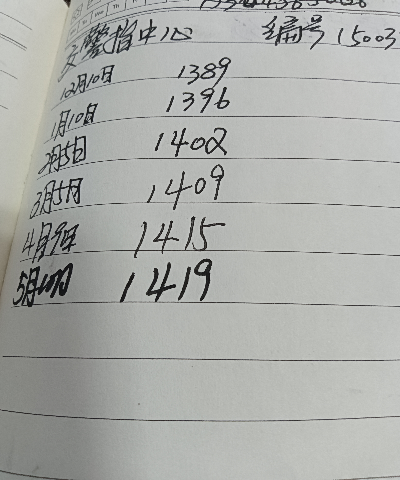 交警指中心 编号 15003
12月10日 1389
1月10日 1396
2月5日 1402
3月5日 1409
4月9日 1415
5月 1419